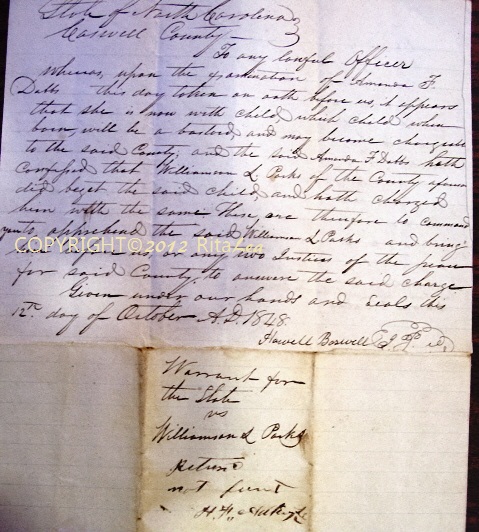 State of North Carolina
Caswell County
To any lawful Officer
whereas, upon the examination of Amanda F.
Dabbs this day taken on oath before us, it appears
that she is now with child, which child when
born, will be a bastard and may become chargeable
to the said County; and the said Amanda F Dabbs hath
confessed that Williamson L Parks of the County aforesaid
did beget the said child, and hath charged
him with the same These are therefore to command
you to apprehend the said Williamson L Parks and bring
him before us, or any two Justices of the peace
for said County, to answere the said charge
Given under our hands and Seals this
12th day of October A.D. 1848.
Howell Boswell J P
COPYRIGHT©2012 RitaLea
Warrant for
the State
vs
Williamson L Parks
Return
not funt
H. F.